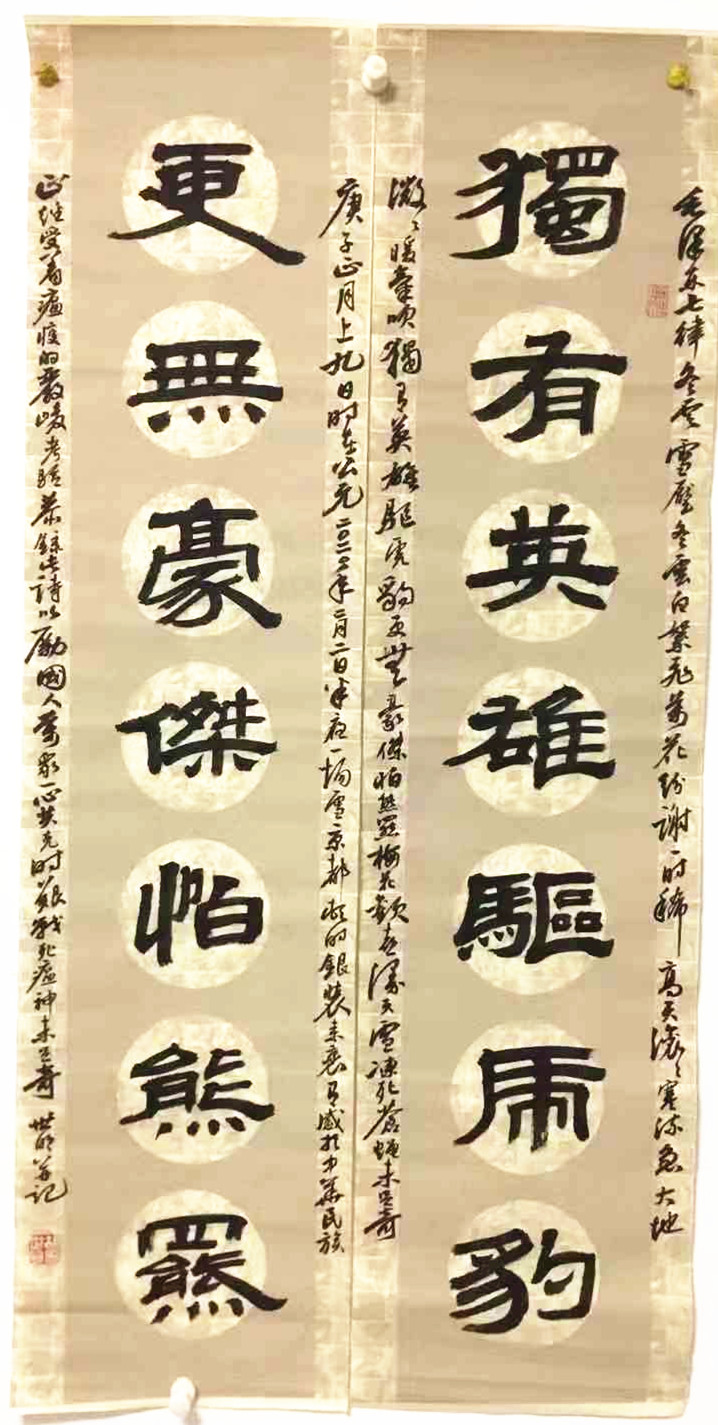 毛泽东七律冬雲雪壓冬雲白絮飛萬花纷謝一时稀高天滚々寒流急大地
獨有英雄驅虎豹
微々暖氣吹獨有英雄驅虎豹更無豪傑怕熊羆梅花歡喜漫天雪凍死蒼蝇未足奇
庚子正月上九日时在公元二〇二〇年二月二日半夜一場雪京都的銀裝素裹有感於中華民族
更無豪傑怕熊羆
正經受着瘟疫的嚴峻考驗恭錄此詩以勵國人萬眾一心共克时艱戰死瘟神未足奇 世明并记